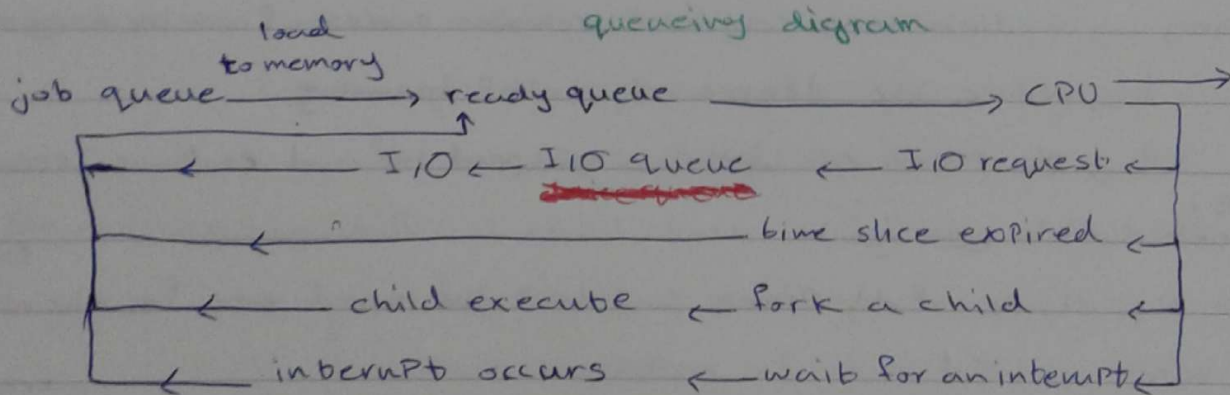 queueing digram
load
to memory
job queue → ready queue → CPU →
I/O ← I/O queue ← I/O request ←
← time slice expired ←
← child execute ← fork a child ←
← interrupt occurs ← wait for an interrupt ←